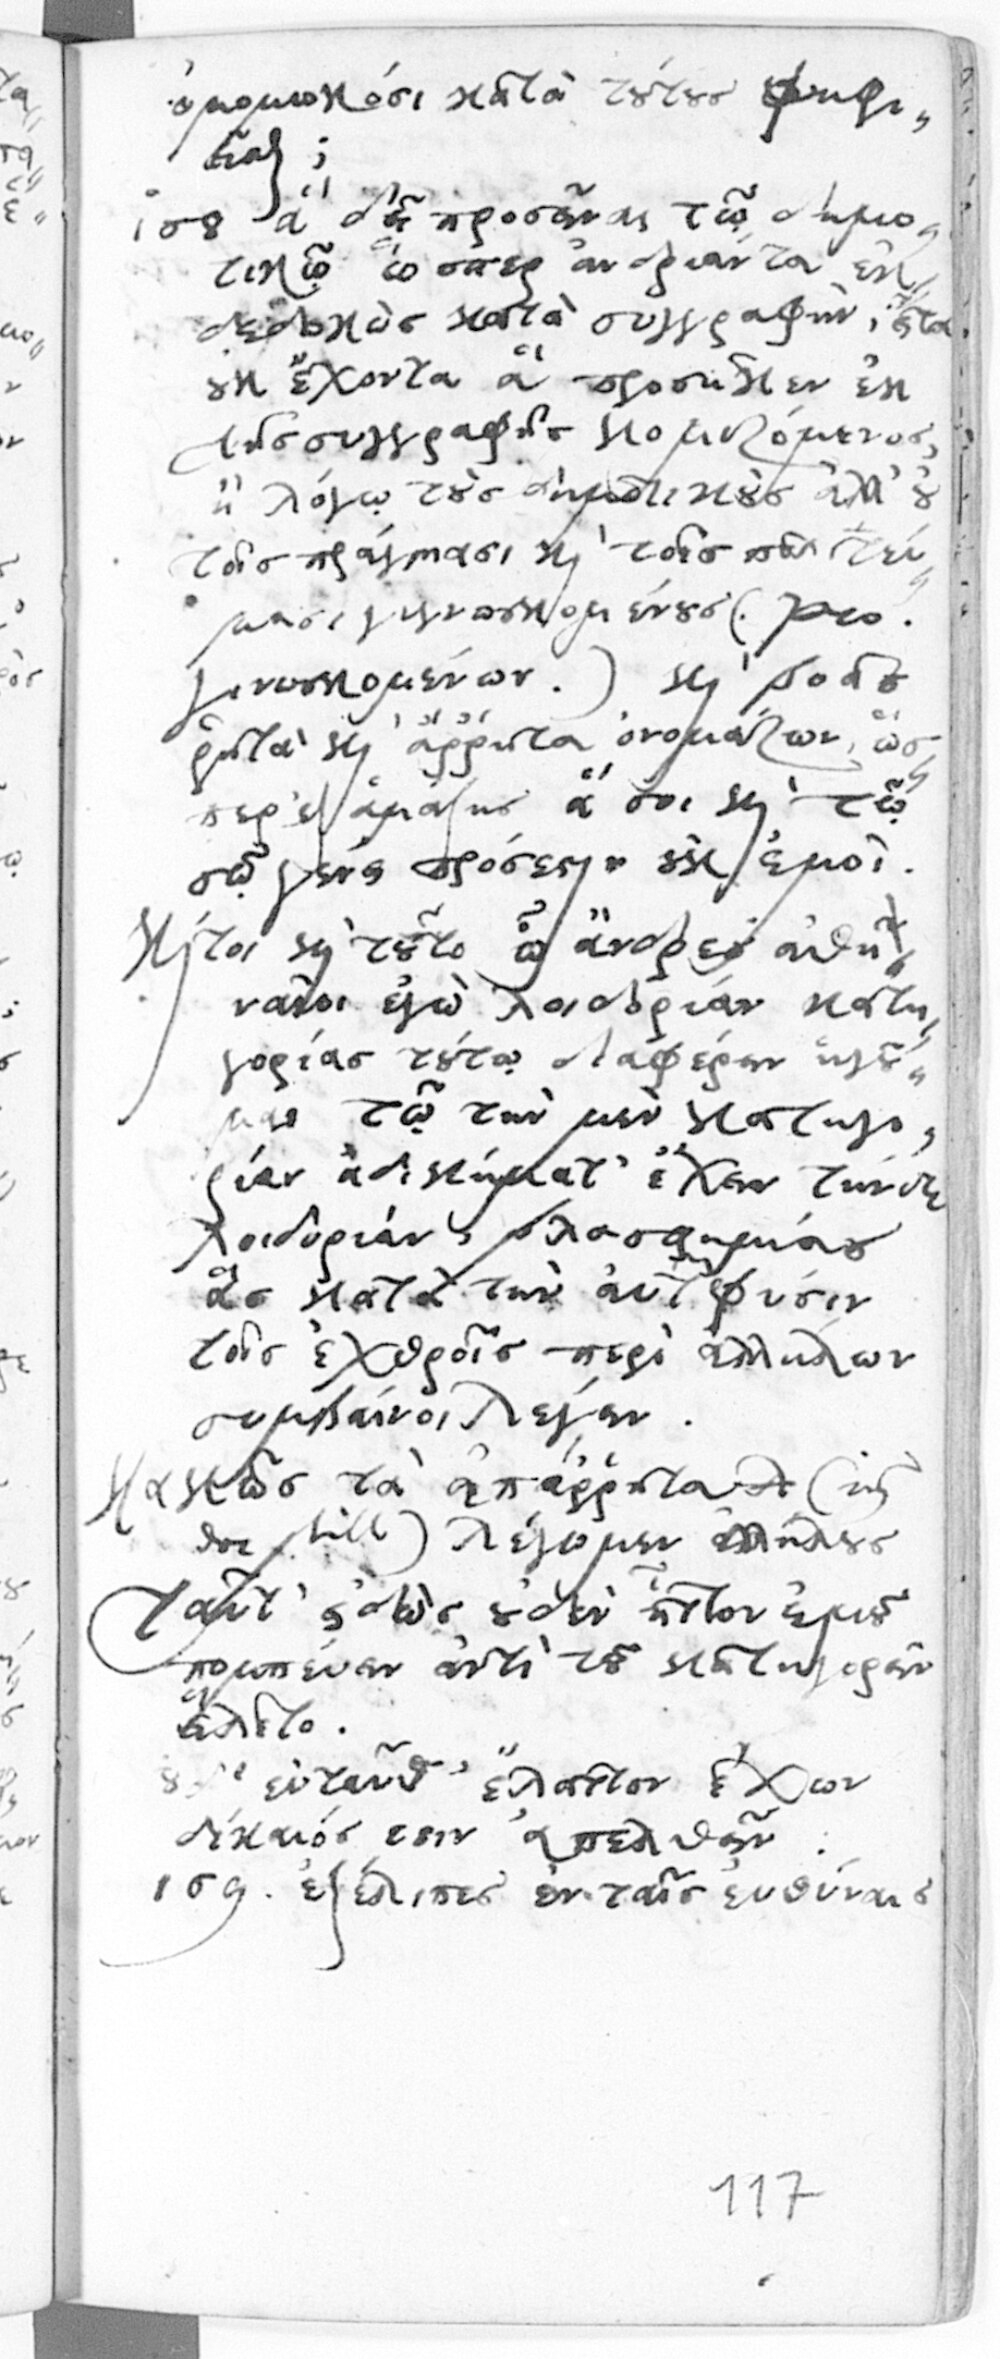 ὀμωμοκόσι κατὰ τούτους ψηφι„
εῖσθ ;
158 ἃ δεῖ προσεῖναι τῷ δημο„
τικῷ ὥσπερ ἀνδριάντα ἐκ„
δεδωκὼς κατὰ συγγραφὴν, εἶτα
οὐκ ἔχοντα ἃ προσῆκεν ἐκ
τῆς συγγραφῆς κομιζόμενος,
ἢ λόγῳ τοὺς δημοτικοὺς ἀλλ' οὐ
τοῖς πράγμασι καὶ τοῖς πολιτεύ„
μασι γιγνωσκομένους (. pro .
γινωσκομένων .) καὶ βοᾷς
ῥητὰ καὶ ἄῤῥητα ὀνομάζων, ὥσ„
περ ἐξ ἁμάξης ἃ σοι καὶ τῷ
σῷ γένει πρόσεστιν οὐκ ἐμοὶ.
Καίτοι καὶ τοῦτο ὦ ἄνδρες ἀθη„
ναῖοι ἐγὼ λοιδορίαν κατη„
γορίας τούτῳ διαφέρειν ἡγοῦ„
μαι τῷ τὴν μὲν κατηγο„
ρίαν ἀδικήματ' ἔχειν τὴν δὲ
λοιδορίαν, βλασφημίας
ἃς κατὰ τὴν αὑτ φύσιν
τοῖς ἐχθροῖς περὶ ἀλλήλων
συμβαίνει λέγειν .
Κακῶς τὰ ἀπόῤῥητα ( will) λέγωμεν ἀλλήλους
Ταῦτ' εἰδὼς οὐδὲν ἧττον ἐμοῦ
πομπεύειν ἀντὶ τοῦ κατηγορεῖν
εἵλετο .
οὐδ' ἐνταῦθ' ἔλαττον ἔχων
δίκαιός ἐστιν ἀπελθεῖν .
159 . ἐξέλιπες ἐν ταῖς εὐθύναις
117